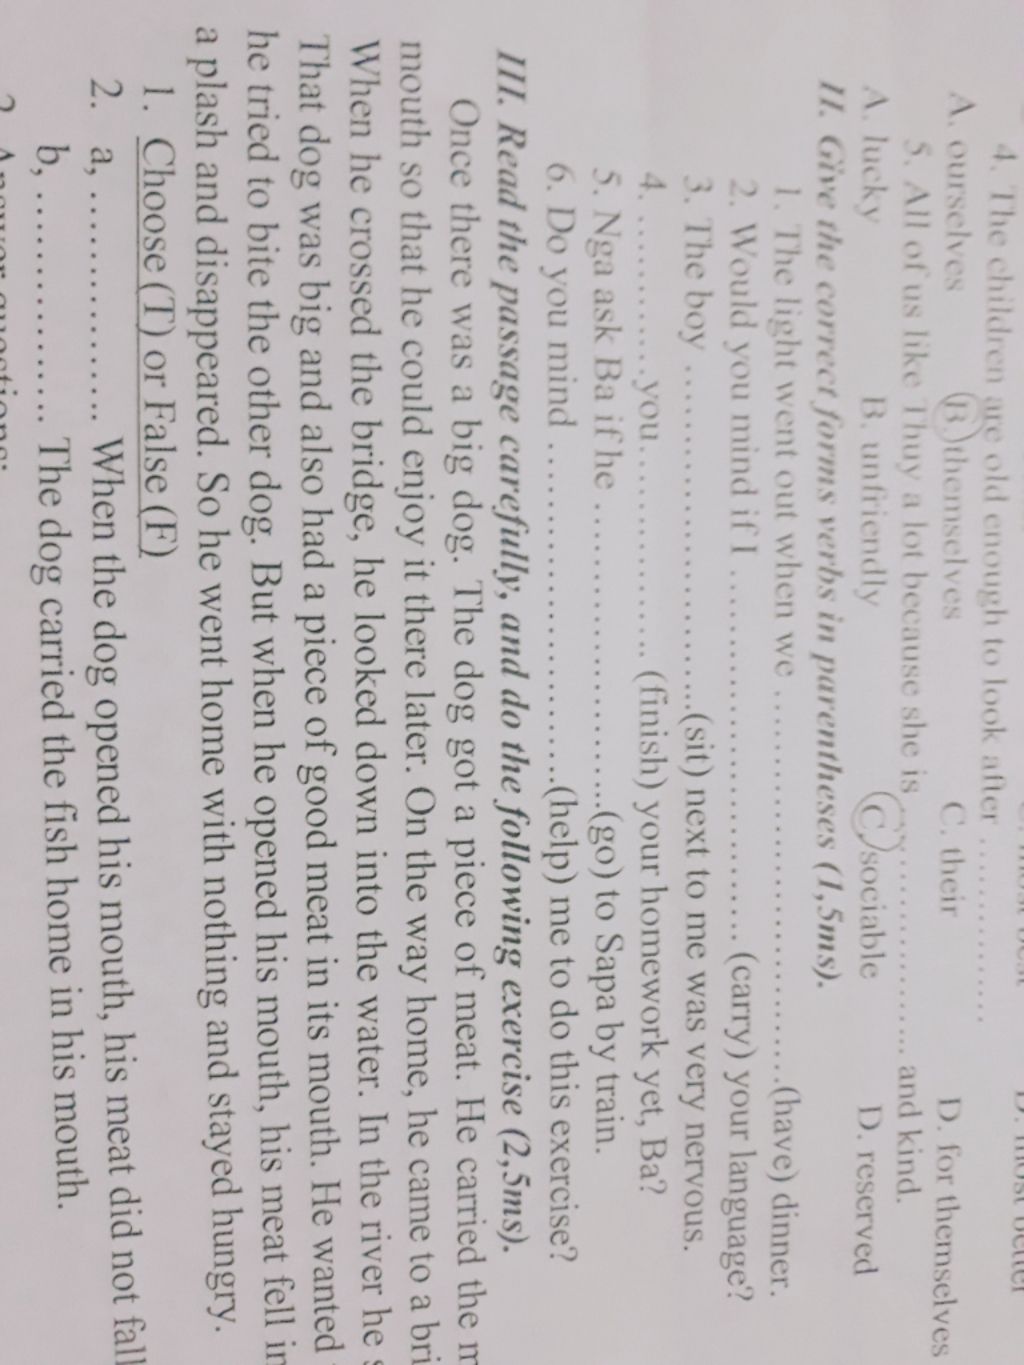 4. The children are old enough to look after ............
A. ourselves B. themselves C. their D. for themselves
5. All of us like Thuy a lot because she is .................. and kind.
A. lucky B. unfriendly C. sociable D. reserved
II. Give the correct forms verbs in parentheses (1,5ms).
1. The light went out when we ..............................(have) dinner.
2. Would you mind if I .............................. (carry) your language?
3. The boy ..............................(sit) next to me was very nervous.
4. ............you................. (finish) your homework yet, Ba?
5. Nga ask Ba if he ..........................(go) to Sapa by train.
6. Do you mind ..............................(help) me to do this exercise?
III. Read the passage carefully, and do the following exercise (2,5ms).
Once there was a big dog. The dog got a piece of meat. He carried the
mouth so that he could enjoy it there later. On the way home, he came to a
When he crossed the bridge, he looked down into the water. In the river he
That dog was big and also had a piece of good meat in its mouth. He wanted
he tried to bite the other dog. But when he opened his mouth, his meat fell
a plash and disappeared. So he went home with nothing and stayed hungry.
1. Choose (T) or False (F)
2. a, ................ When the dog opened his mouth, his meat did not fall
b, ................ The dog carried the fish home in his mouth.